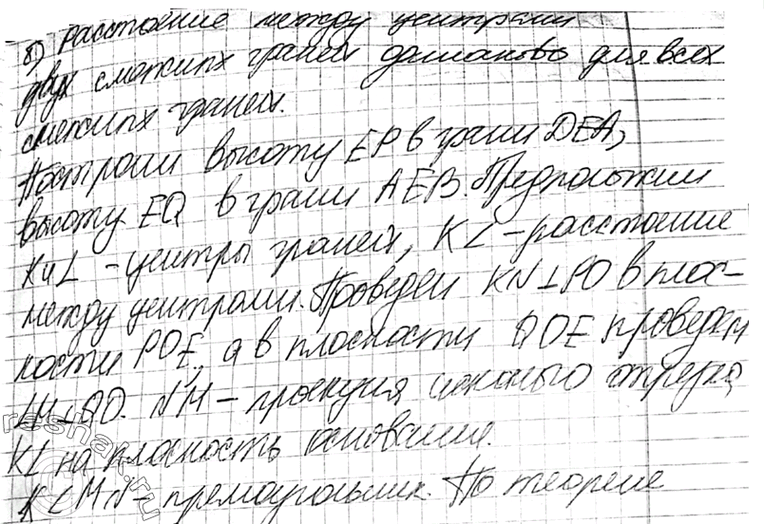 8) расстояние между центрами
двух смежных граней одинаково для всех
смежных граней.
Построим высоту EP в грани DEA,
высоту EQ в грани AEB. Предположим
K и L - центры граней, KL - расстояние
между центрами. Проведем KN⊥PO в плос-
кости POE, а в плоскости QOE проведем
LM⊥QO. NM - проекция искомого отрезка
KL на плоскость основания.
KLMN - прямоугольник. По теореме
reshak.ru